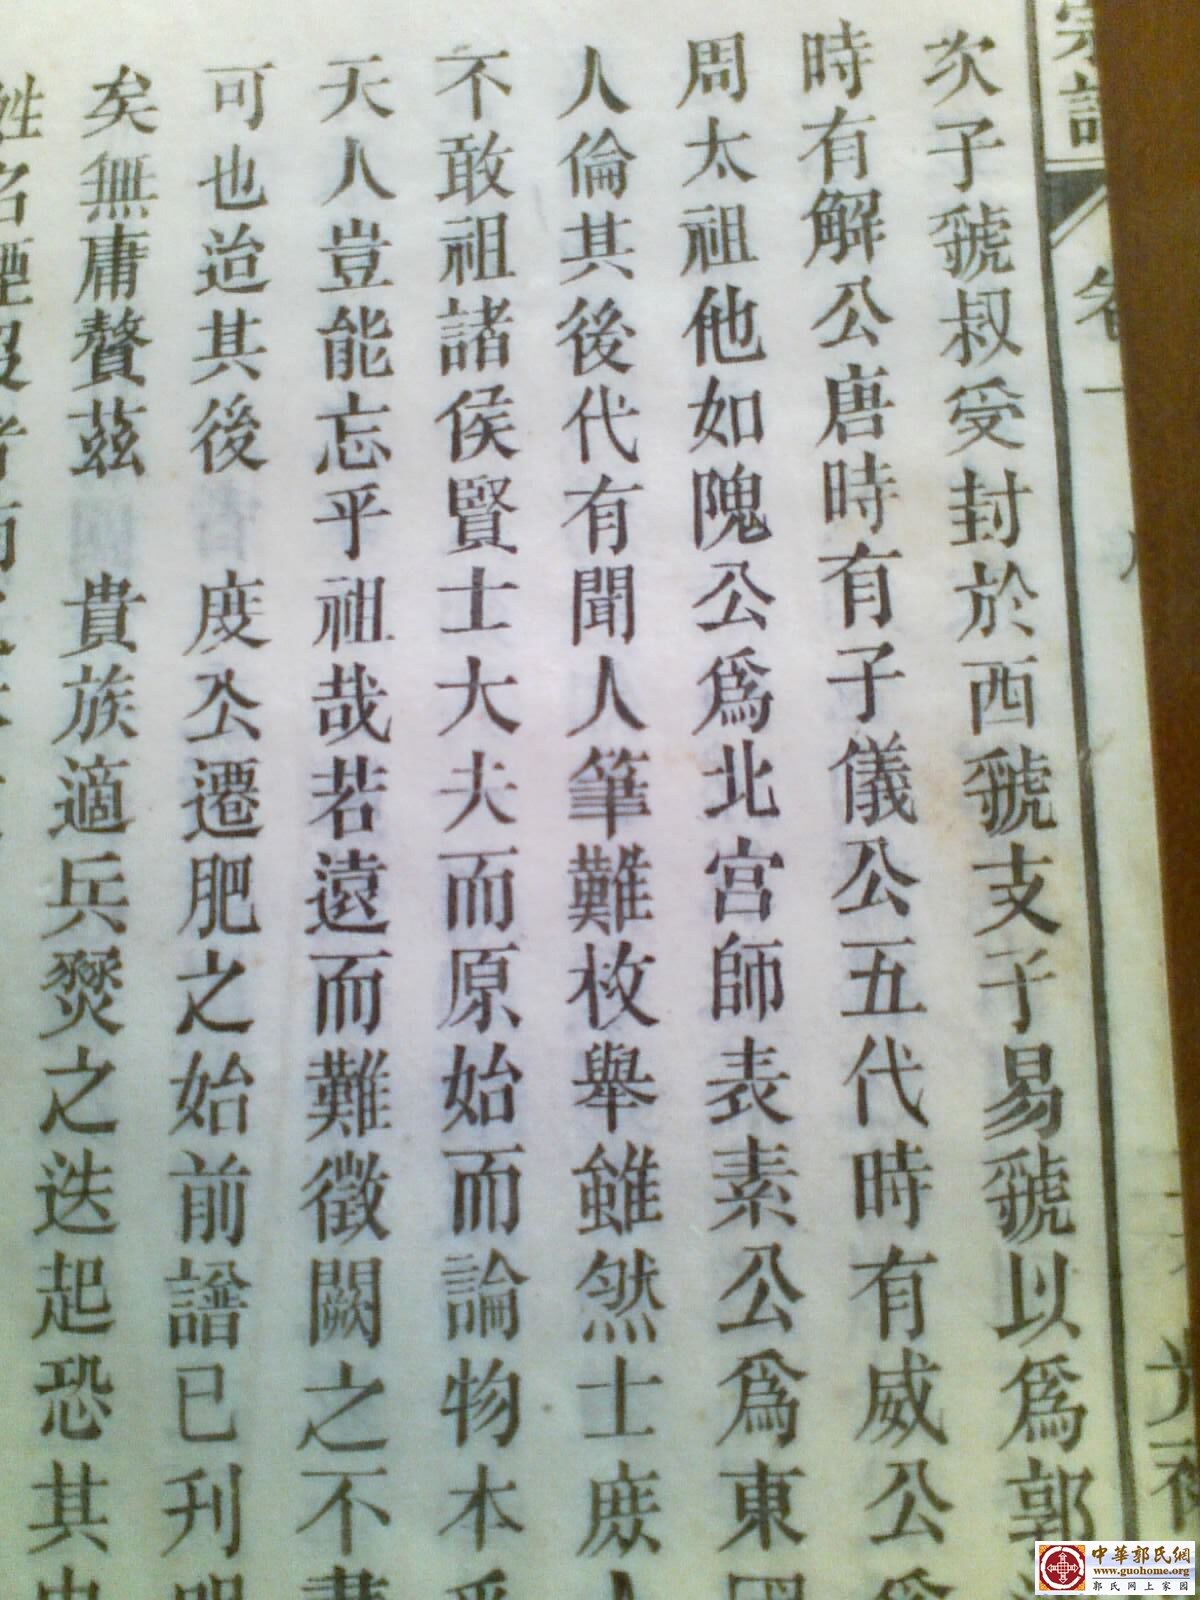 宗譜
卷一
次子虢叔受封於西虢支子易虢以爲郭
時有解公唐時有子儀公五代時有威公
周太祖他如隗公爲北宮師表素公爲東
人倫其後代有聞人筆難枚舉雖然士庶人
不敢祖諸侯賢士大夫而原始而論物本乎
天人豈能忘乎祖哉若遠而難徵闕之不
可也迨其後 度公遷肥之始前譜已刊明
矣無庸贅茲 貴族適兵燹之迭起恐其
姓名湮沒
中華郭氏網
www.guohome.org
郭氏网上家园